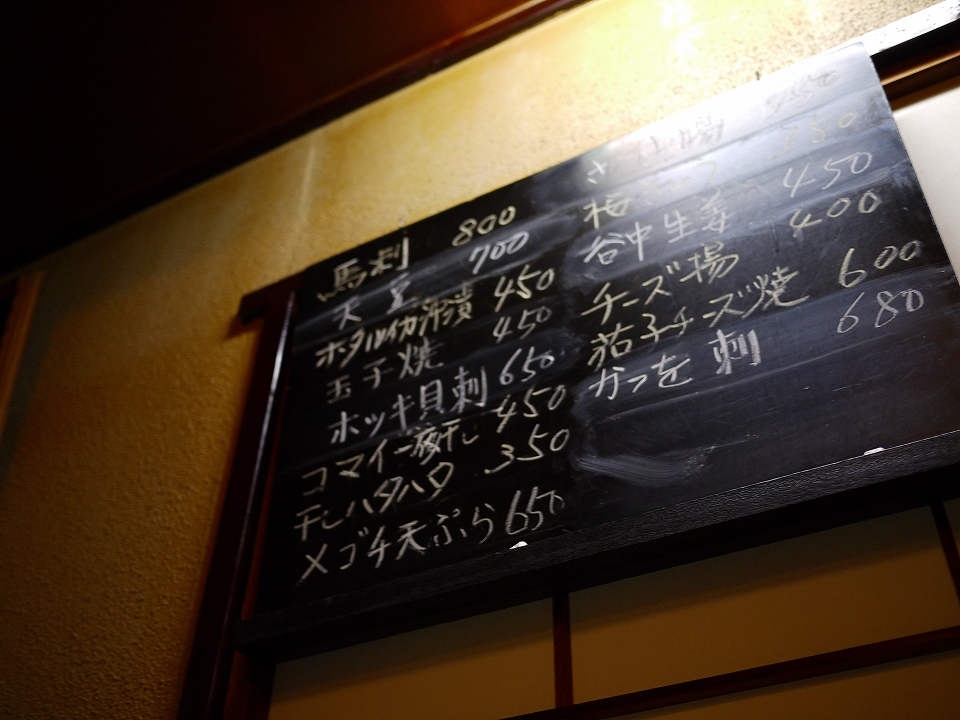 馬刺 800
天豆 700
ホタルイカ沖漬 450
玉子焼 450
ホッキ貝刺 650
コマイ一夜干し 450
干しハタハタ 350
メゴチ天ぷら 650
さ 揚
梅 350
谷中生姜 450
チーズ揚 400
茄子チーズ焼 600
かつを刺 680